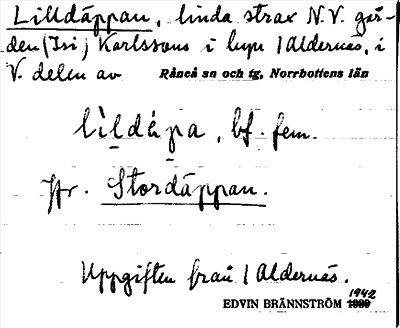 Lilldäppan, linda strax N.V. går-
den (Isi) Karlssons i byn Aldernäs, i
V. delen av Råneå sn och tg, Norrbottens län
lìldápa, bf. fem.
Jfr. Stordäppan.
Uppgiften från Aldernäs.
1942
EDVIN BRÄNNSTRÖM